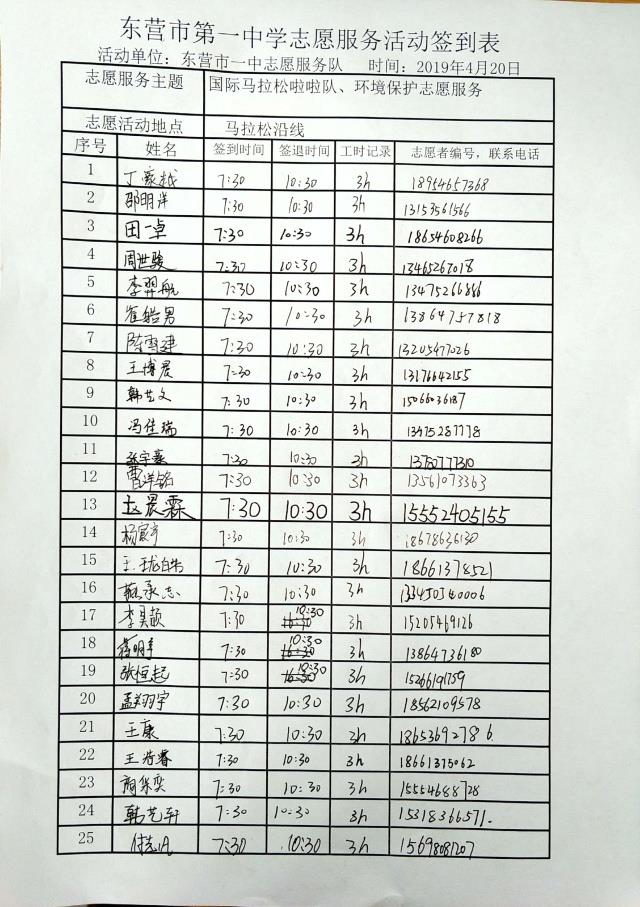 东营市第一中学志愿服务活动签到表
活动单位：东营市一中志愿服务队 时间：2019年4月20日
志愿服务主题 国际马拉松啦啦队、环境保护志愿服务
志愿活动地点 马拉松沿线
序号 姓名 签到时间 签退时间 工时记录 志愿者编号，联系电话
1 丁豪越 7:30 10:30 3h 18954657368
2 邵明洋 7:30 10:30 3h 13153561566
3 田一卓 7:30 10:30 3h 18654608266
4 周世骏 7:30 10:30 3h 13465267018
5 李羿航 7:30 10:30 3h 13475266886
6 崔皓男 7:30 10:30 3h 13864757818
7 陈雪建 7:30 10:30 3h 13205477026
8 王博晨 7:30 10:30 3h 13176642155
9 韩艺文 7:30 10:30 3h 15066036187
10 冯佳瑞 7:30 10:30 3h 13475287778
11 张宇豪 7:30 10:30 3h 13780777310
12 曹洋铭 7:30 10:30 3h 13561073363
13 赵晨霖 7:30 10:30 3h 15552405155
14 杨宸宇 7:30 10:30 3h 18678636130
15 王珑皓 7:30 10:30 3h 18661378521
16 承志 7:30 10:30 3h 133450340006
17 李昊颔 7:30 10:30 3h 15205469126
18 蒋明宇 7:30 10:30 3h 13864736180
19 张恒起 7:30 10:30 3h 15266191759
20 孟翔宇 7:30 10:30 3h 18562109578
21 王康 7:30 10:30 3h 18653692786
22 王浩睿 7:30 10:30 3h 18661375062
23 颜华奕 7:30 10:30 3h 15554688728
24 韩艺轩 7:30 10:30 3h 15318366571.
25 付志凡 7:30 10:30 3h 15698081207